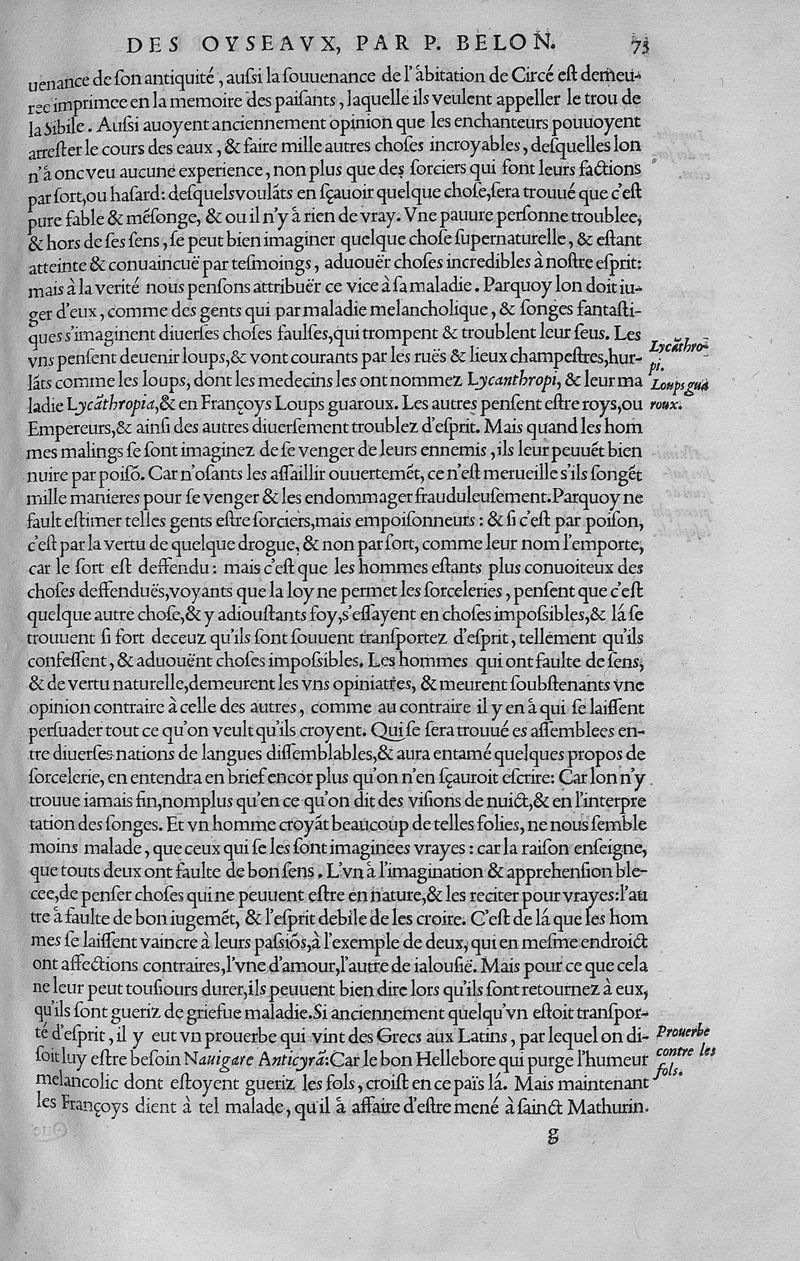 DES OYSEAVX, PAR P. BELON. 73
uenance de ſon antiquité, auſsi la ſouuenance de l'åbitation de Circé eſt demeu-
ree imprimee en la memoire des paiſants, laquelle ils veulent appeller le trou de
la Sibile. Auſsi auoyent anciennement opinion que les enchanteurs pouuoyent
arreſter le cours des eaux, & faire mille autres choſes incroyables, deſquelles lon
n'å onc veu aucune experience, non plus que des ſorciers qui font leurs factions
par ſort, ou haſard: deſquels voulãts en ſçauoir quelque choſe, ſera trouué que c'eſt
pure fable & mẽſonge, & ou il n'y å rien de vray. Vne pauure perſonne troublee,
& hors de ſes ſens, ſe peut bien imaginer quelque choſe ſupernaturelle, & eſtant
atteinte & conuaincuë par teſmoings, aduouër choſes incredibles à noſtre eſprit:
mais à la verité nous penſons attribuër ce vice à ſa maladie. Parquoy lon doit iu-
ger d'eux, comme des gents qui par maladie melancholique, & ſonges fantaſti-
ques s'imaginent diuerſes choſes faulſes, qui trompent & troublent leur ſeus. Les
vns penſent deuenir loups, & vont courants par les ruës & lieux champeſtres, hur-
lãts comme les loups, dont les medecins les ont nommez Lycanthropi, & leur ma
ladie Lycãthropia, & en Françoys Loups guaroux. Les autres penſent eſtre roys, ou
Empereurs, & ainſi des autres diuerſement troublez d'eſprit. Mais quand les hom
mes malings ſe ſont imaginez de ſe venger de leurs ennemis, ils leur peuuẽt bien
nuire par poiſõ. Car n'oſants les aſſaillir ouuertemẽt, ce n'eſt merueille s'ils ſongẽt
mille manieres pour ſe venger & les endommager frauduleuſement. Parquoy ne
fault eſtimer telles gents eſtre ſorciers, mais empoiſonneurs: & ſi c'eſt par poiſon,
c'eſt par la vertu de quelque drogue, & non par ſort, comme leur nom l'emporte,
car le ſort eſt deffendu: mais c'eſt que les hommes eſtants plus conuoiteux des
choſes deffenduës, voyants que la loy ne permet les ſorceleries, penſent que c'eſt
quelque autre choſe, & y adiouſtants foy, s'eſſayent en choſes impoſsibles, & lå ſe
trouuent ſi fort deceuz qu'ils ſont ſouuent tranſportez d'eſprit, tellement qu'ils
confeſſent, & aduouënt choſes impoſsibles. Les hommes qui ont faulte de ſens,
& de vertu naturelle, demeurent les vns opiniatres, & meurent ſoubſtenants vne
opinion contraire à celle des autres, comme au contraire il y en å qui ſe laiſſent
perſuader tout ce qu'on veult qu'ils croyent. Qui ſe ſera trouué es aſſemblees en-
tre diuerſes nations de langues diſſemblables, & aura entamé quelques propos de
ſorcelerie, en entendra en brief encor plus qu'on n'en ſçauroit eſcrire: Car lon n'y
trouue iamais fin, nomplus qu'en ce qu'on dit des viſions de nuict, & en l'interpre
tation des ſonges. Et vn homme croyãt beaucoup de telles folies, ne nous ſemble
moins malade, que ceux qui ſe les ſont imaginees vrayes: car la raiſon enſeigne,
que touts deux ont faulte de bon ſens. L'vn å l'imagination & apprehenſion ble-
cee, de penſer choſes qui ne peuuent eſtre en nature, & les reciter pour vrayes: l'au
tre å faulte de bon iugemẽt, & l'eſprit debile de les croire. C'eſt de lå que les hom
mes ſe laiſſent vaincre à leurs paſsiõs, à l'exemple de deux, qui en meſme endroict
ont affections contraires, l'vne d'amour, l'autre de ialouſië. Mais pour ce que cela
ne leur peut touſiours durer, ils peuuent bien dire lors qu'ils ſont retournez à eux,
qu'ils ſont gueriz de griefue maladie. Si anciennement quelqu'vn eſtoit tranſpor-
té d'eſprit, il y eut vn prouerbe qui vint des Grecs aux Latins, par lequel on di-
ſoit luy eſtre beſoin Nauigare Anticyrã: Car le bon Hellebore qui purge l'humeur
melancolic dont eſtoyent gueriz les fols, croiſt en ce païs lå. Mais maintenant
les Françoys dient à tel malade, qu'il å affaire d'eſtre mené à ſainct Mathurin.
g
Lycãthro-
pi.
Loups gua
roux.
Prouerbe
contre les
fols.